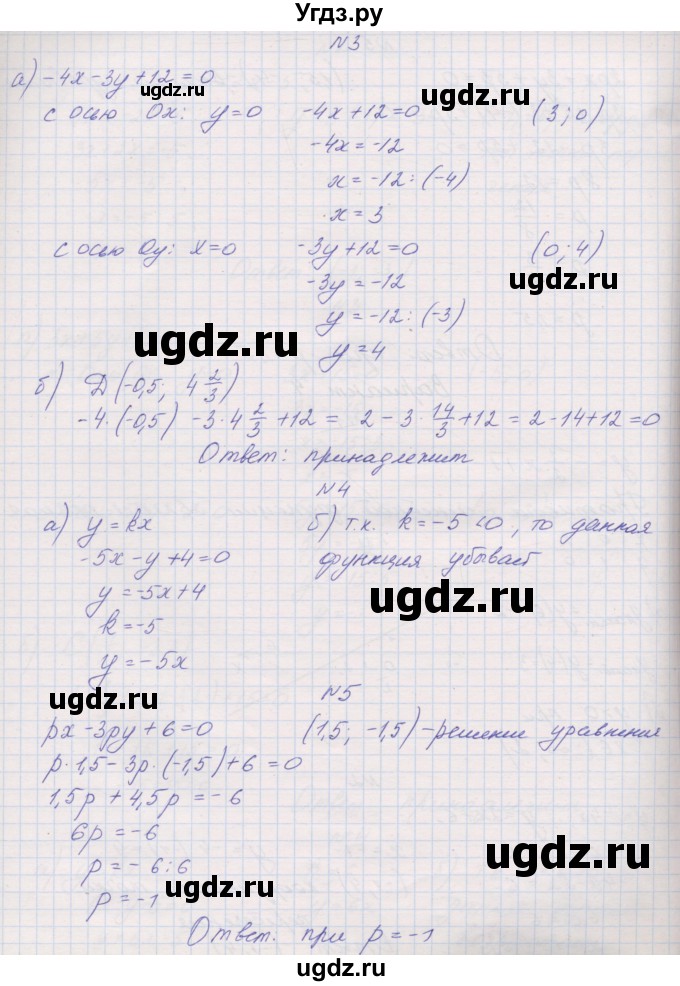 Угдз.ру
№3
а) -4x-3y+12=0
с осью Ox: y=0 -4x+12=0 (3;0)
-4x=-12
x=-12:(-4)
x=3
с осью Oy: x=0 -3y+12=0 (0;4)
-3y=-12
y=-12:(-3)
y=4
б) D(-0,5; 4 2/3)
-4·(-0,5) -3·4 2/3 +12 = 2-3·14/3+12=2-14+12=0
Ответ: принадлежит
№4
а) y=kx б) т.к. k=-5<0, то данная
-5x-y+4=0 функция убывает
y=-5x+4
k=-5
y=-5x
№5
px-3py+6=0 (1,5; -1,5)-решение уравнения
p·1,5-3p·(-1,5)+6=0
1,5p+4,5p=-6
6p=-6
p=-6:6
p=-1
Ответ: при p=-1
ugdz.ru
ugdz.ru
ugdz.ru
ugdz.ru
ugdz.ru
ugdz.ru
ugdz.ru
ugdz.ru
ugdz.ru
ugdz.ru
ugdz.ru